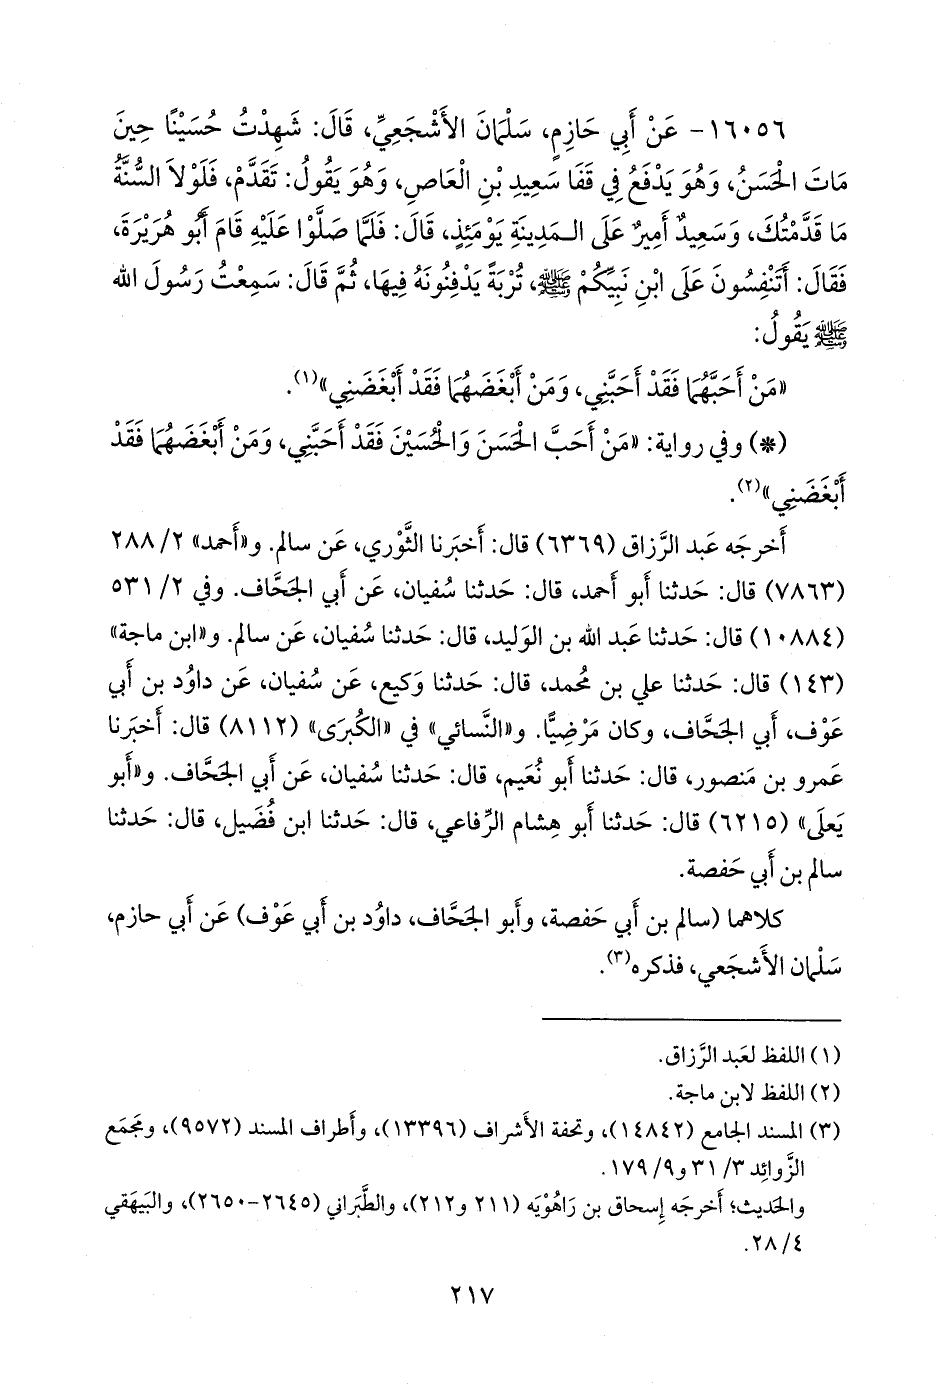 ١٦٠٥٦- عَنْ أَبِي حَازِمٍ، سَلْمَانَ الأَشْجَعِيِّ، قَالَ: شَهِدْتُ حُسَيْنًا حِينَ
مَاتَ الْحَسَنُ، وَهُوَ يَدْفَعُ فِي قَفَا سَعِيدِ بْنِ الْعَاصِ، وَهُوَ يَقُولُ: تَقَدَّمْ، فَلَوْلاَ السُّنَّةُ
مَا قَدَّمْتُكَ، وَسَعِيدٌ أَمِيرٌ عَلَى الـمَدِينَةِ يَوْمَئِذٍ، قَالَ: فَلَمَّا صَلَّوْا عَلَيْهِ قَامَ أَبُو هُرَيْرَةَ،
فَقَالَ: أَتَنْفِسُونَ عَلَى ابْنِ نَبِيِّكُمْ ﷺ، تُرْبَةً يَدْفِنُونَهُ فِيهَا، ثُمَّ قَالَ: سَمِعْتُ رَسُولَ الله
ﷺ يَقُولُ:
«مَنْ أَحَبَّهُمَا فَقَدْ أَحَبَّنِي، وَمَنْ أَبْغَضَهُمَا فَقَدْ أَبْغَضَنِي»(١).
(*) وفي رواية: «مَنْ أَحَبَّ الْحَسَنَ وَالْحُسَيْنَ فَقَدْ أَحَبَّنِي، وَمَنْ أَبْغَضَهُمَا فَقَدْ
أَبْغَضَنِي»(٢).
أَخرجَه عَبد الرَّزاق (٦٣٦٩) قال: أَخبَرنا الثَّوْري، عَن سالم. و«أَحمد» ٢/ ٢٨٨
(٧٨٦٣) قال: حَدثنا أَبو أَحمد، قال: حَدثنا سُفيان، عَن أَبي الجَحَّاف. وفي ٢/ ٥٣١
(١٠٨٨٤) قال: حَدثنا عَبد الله بن الوَليد، قال: حَدثنا سُفيان، عَن سالم. و«ابن ماجة»
(١٤٣) قال: حَدثنا علي بن مُحمد، قال: حَدثنا وَكيع، عَن سُفيان، عَن داوُد بن أَبي
عَوْف، أَبي الجَحَّاف، وكان مَرْضِيًّا. و«النَّسائي» في «الكُبرَى» (٨١١٢) قال: أَخبَرنا
عَمرو بن مَنصور، قال: حَدثنا أَبو نُعَيم، قال: حَدثنا سُفيان، عَن أَبي الجَحَّاف. و«أَبو
يَعلَى» (٦٢١٥) قال: حَدثنا أَبو هِشام الرِّفاعي، قال: حَدثنا ابن فُضَيل، قال: حَدثنا
سالم بن أَبي حَفصة.
كلاهما (سالم بن أَبي حَفصة، وأَبو الجَحَّاف، داوُد بن أَبي عَوْف) عَن أَبي حازم،
سَلْمان الأَشجَعي، فذكره(٣).
(١) اللفظ لعَبد الرَّزاق.
(٢) اللفظ لابن ماجة.
(٣) المسند الجامع (١٤٨٤٢)، وتحفة الأَشراف (١٣٣٩٦)، وأَطراف المسند (٩٥٧٢)، ومَجمَع
الزَّوائِد ٣/ ٣١ و٩/ ١٧٩.
والحَديث؛ أَخرجَه إِسحاق بن رَاهُوْيَه (٢١١ و٢١٢)، والطَّبَراني (٢٦٤٥-٢٦٥٠)، والبَيهَقي
٤/ ٢٨.
٢١٧